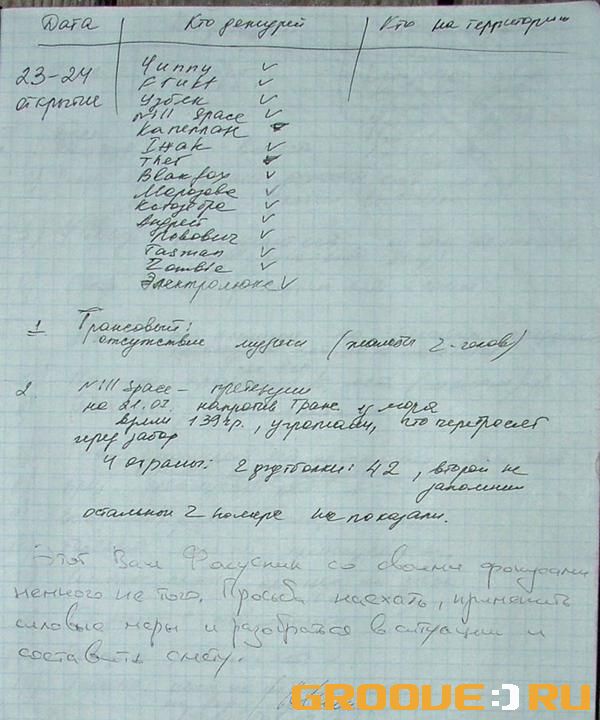 Дата Кто дежурит Кто на территории
23-24
открытие
Чиппу
Узбек
N'III Space
Капеллан
Ihak
Thef
Blackfox
Морозова
Андрей
Tasman
Zombie
Электролюкс
1 Трансовый:
отсутствие музыки (жалобы 2-голов)
2. N'III Space - претензии
на 21.07. напротив Транс у моря
взяли 1394р., угрожали, что перебросят
через забор
4 охраны: 2 футболки: 42, второй не
запомнили
остальной 2 номера не показали.
Этот Ваш Фокусник со своими фокусами
немного не того. Просьба наехать, применить
силовые меры и разобраться в ситуации и
составить смету.
GROOVE:RU